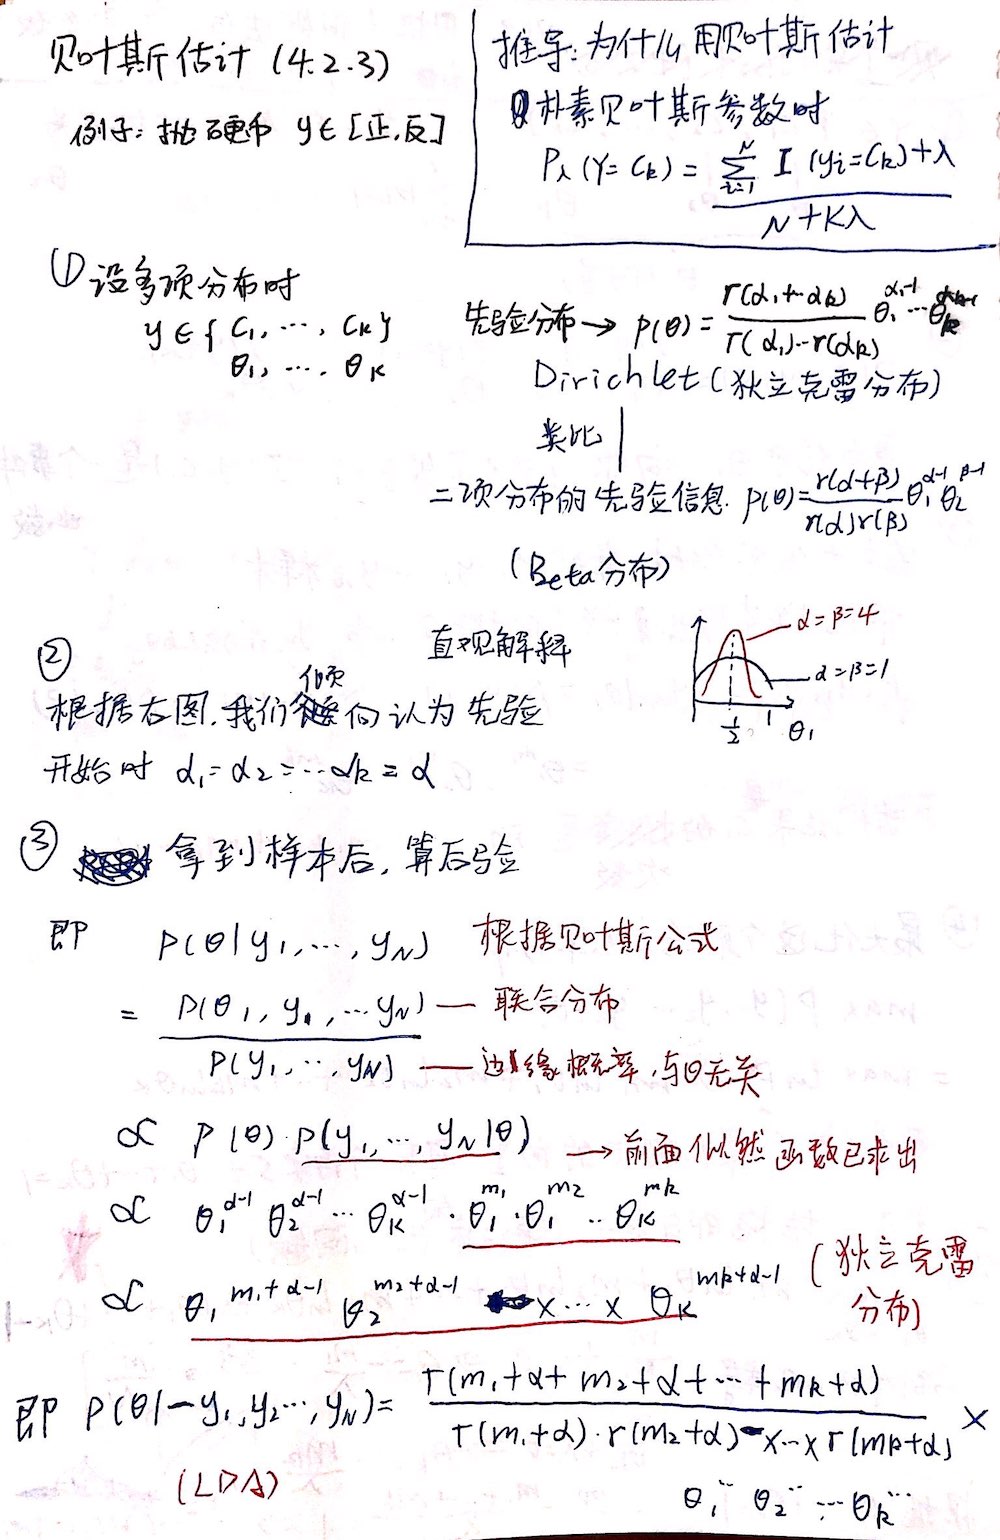 贝叶斯估计 (4.2.3)
例子: 抛硬币 y∈[正,反]
推导: 为什么用贝叶斯估计
朴素贝叶斯参数时
Pλ(Y=Ck) = \frac{\sum_{i=1}^{N} I(yi=Ck)+λ}{N+Kλ}
① 设多项分布时
y∈{C₁, ..., Ck}
θ₁, ..., θK
先验分布 → p(θ) = \frac{Γ(α₁+..αk)}{Γ(α₁)..Γ(αk)} θ₁^{α₁-1} ... θk^{αk-1}
Dirichlet (狄立克雷分布)
类比
二项分布的先验信息. p(θ) = \frac{Γ(α+β)}{Γ(α)Γ(β)} θ₁^{α-1} θ₂^{β-1}
(Beta分布)
直观解释
α=β=4
α=β=1
1/2 1 θ₁
②
根据右图,我们倾向认为先验
开始时 α₁=α₂=...αk=α
③ 拿到样本后, 算后验
即 P(θ|y₁, ..., yN) 根据贝叶斯公式
= \frac{P(θ₁, y₁, ...yN)}{P(y₁, ..., yN)}
— 联合分布
— 边缘概率,与θ无关
∝ P(θ)·P(y₁, ..., yN|θ) → 前面似然函数已求出
∝ θ₁^{α-1} θ₂^{α-1} ... θK^{α-1} · θ₁^{m₁}·θ₁^{m₂} .. θK^{mk}
∝ θ₁^{m₁+α-1} θ₂^{m₂+α-1} x...x θK^{mk+α-1} (狄立克雷
分布)
即 P(θ|-y₁,y₂...,yN) = \frac{Γ(m₁+α+m₂+α+...+mk+α)}{Γ(m₁+α)·Γ(m₂+α) x...x Γ(mk+α)} ×
(LDA)
θ₁^{...} θ₂^{...} ... θk^{...}